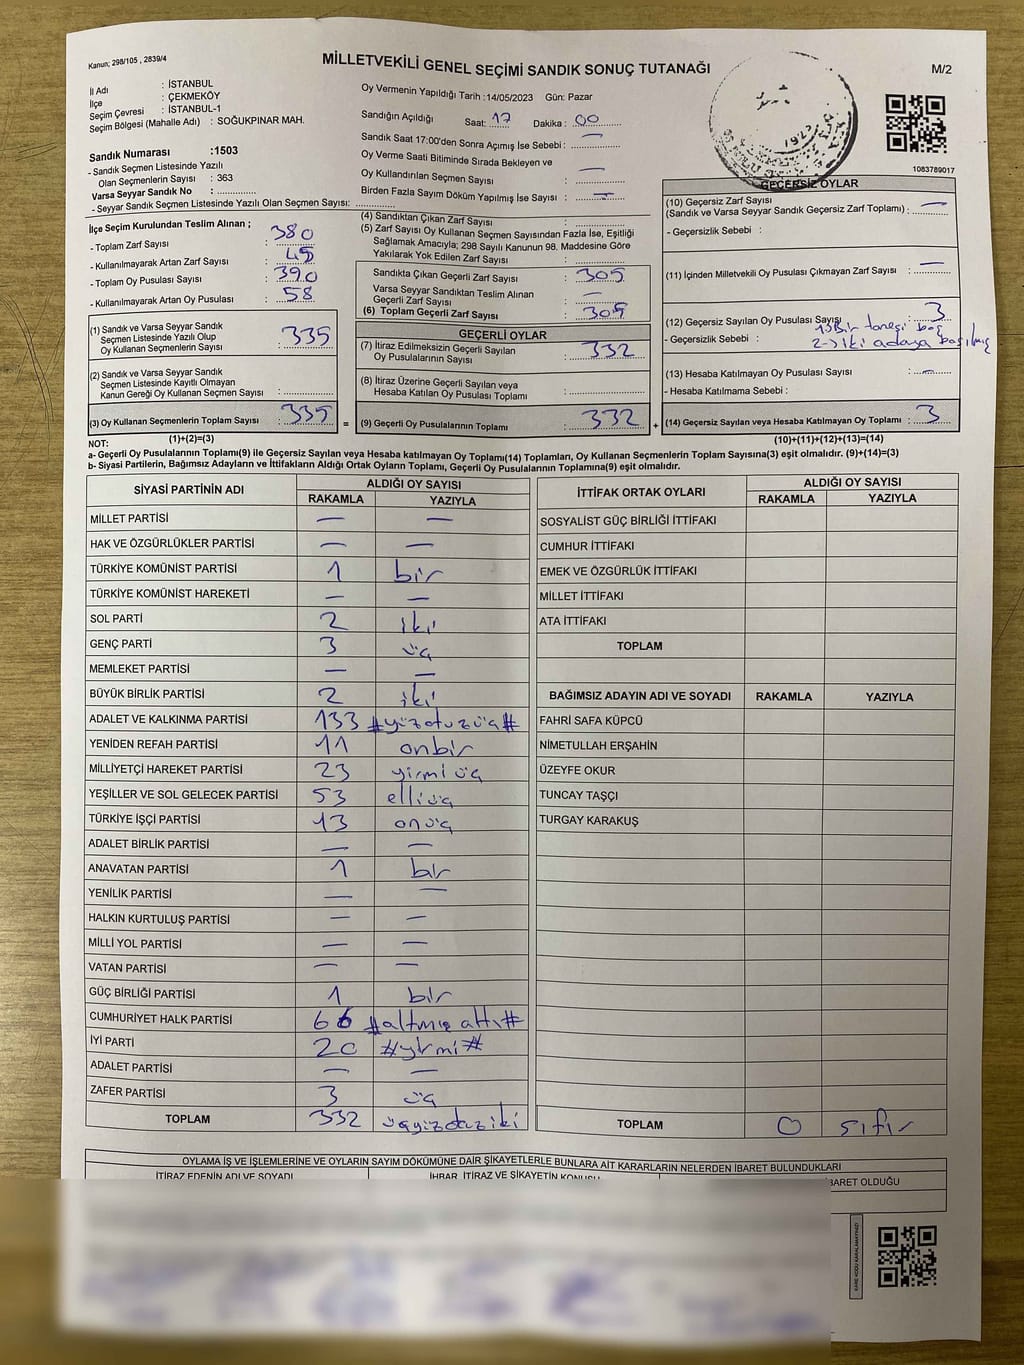 Kanun; 298/105 , 2839/4
MİLLETVEKİLİ GENEL SEÇİMİ SANDIK SONUÇ TUTANAĞI
M/2
İl Adı : İSTANBUL
İlçe : ÇEKMEKÖY
Seçim Çevresi : İSTANBUL-1
Seçim Bölgesi (Mahalle Adı) : SOĞUKPINAR MAH.
Sandık Numarası :1503
- Sandık Seçmen Listesinde Yazılı
Olan Seçmenlerin Sayısı : 363
Varsa Seyyar Sandık No :
- Seyyar Sandık Seçmen Listesinde Yazılı Olan Seçmen Sayısı:
Oy Vermenin Yapıldığı Tarih :14/05/2023 Gün: Pazar
Sandığın Açıldığı Saat: 17 Dakika : 00
Sandık Saat 17:00'den Sonra Açımış İse Sebebi : —
Oy Verme Saati Bitiminde Sırada Bekleyen ve
Oy Kullandırılan Seçmen Sayısı : —
Birden Fazla Sayım Döküm Yapılmış İse Sayısı : —
1083789017
İlçe Seçim Kurulundan Teslim Alınan ;
- Toplam Zarf Sayısı : 380
- Kullanılmayarak Artan Zarf Sayısı : 45
- Toplam Oy Pusulası Sayısı : 390
- Kullanılmayarak Artan Oy Pusulası : 58
(1) Sandık ve Varsa Seyyar Sandık
Seçmen Listesinde Yazılı Olup
Oy Kullanan Seçmenlerin Sayısı : 335
(2) Sandık ve Varsa Seyyar Sandık
Seçmen Listesinde Kayıtlı Olmayan
Kanun Gereği Oy Kullanan Seçmen Sayısı :
(3) Oy Kullanan Seçmenlerin Toplam Sayısı : 335
(1)+(2)=(3)
(4) Sandıktan Çıkan Zarf Sayısı :
(5) Zarf Sayısı Oy Kullanan Seçmen Sayısından Fazla İse, Eşitliği
Sağlamak Amacıyla; 298 Sayılı Kanunun 98. Maddesine Göre
Yakılarak Yok Edilen Zarf Sayısı :
Sandıkta Çıkan Geçerli Zarf Sayısı : 305
Varsa Seyyar Sandıktan Teslim Alınan
Geçerli Zarf Sayısı : —
(6) Toplam Geçerli Zarf Sayısı : 305
GEÇERLİ OYLAR
(7) İtiraz Edilmeksizin Geçerli Sayılan
Oy Pusulalarının Sayısı : 332
(8) İtiraz Üzerine Geçerli Sayılan veya
Hesaba Katılan Oy Pusulası Toplamı :
= (9) Geçerli Oy Pusulalarının Toplamı : 332
GEÇERSİZ OYLAR
(10) Geçersiz Zarf Sayısı
(Sandık ve Varsa Seyyar Sandık Geçersiz Zarf Toplamı) : —
- Geçersizlik Sebebi :
(11) İçinden Milletvekili Oy Pusulası Çıkmayan Zarf Sayısı : —
(12) Geçersiz Sayılan Oy Pusulası Sayısı : 3
- Geçersizlik Sebebi : 1→Bir tanesi boş
2→iki adaya basılmış
(13) Hesaba Katılmayan Oy Pusulası Sayısı : —
- Hesaba Katılmama Sebebi :
+ (14) Geçersiz Sayılan veya Hesaba Katılmayan Oy Toplamı : 3
(10)+(11)+(12)+(13)=(14)
NOT:
a- Geçerli Oy Pusulalarının Toplamı(9) ile Geçersiz Sayılan veya Hesaba katılmayan Oy Toplamı(14) Toplamları, Oy Kullanan Seçmenlerin Toplam Sayısına(3) eşit olmalıdır. (9)+(14)=(3)
b- Siyasi Partilerin, Bağımsız Adayların ve İttifakların Aldığı Ortak Oyların Toplamı, Geçerli Oy Pusulalarının Toplamına(9) eşit olmalıdır.
SİYASİ PARTİNİN ADI ALDIĞI OY SAYISI
RAKAMLA YAZIYLA
MİLLET PARTİSİ — —
HAK VE ÖZGÜRLÜKLER PARTİSİ — —
TÜRKİYE KOMÜNİST PARTİSİ 1 bir
TÜRKİYE KOMÜNİST HAREKETİ — —
SOL PARTİ 2 iki
GENÇ PARTİ 3 üç
MEMLEKET PARTİSİ — —
BÜYÜK BİRLİK PARTİSİ 2 iki
ADALET VE KALKINMA PARTİSİ 133 #yüzotuzüç#
YENİDEN REFAH PARTİSİ 11 onbir
MİLLİYETÇİ HAREKET PARTİSİ 23 yirmi üç
YEŞİLLER VE SOL GELECEK PARTİSİ 53 elliüç
TÜRKİYE İŞÇİ PARTİSİ 13 onüç
ADALET BİRLİK PARTİSİ — —
ANAVATAN PARTİSİ 1 bir
YENİLİK PARTİSİ — —
HALKIN KURTULUŞ PARTİSİ — —
MİLLİ YOL PARTİSİ — —
VATAN PARTİSİ — —
GÜÇ BİRLİĞİ PARTİSİ 1 bir
CUMHURİYET HALK PARTİSİ 66 #altmış altı#
İYİ PARTİ 20 #yirmi#
ADALET PARTİSİ — —
ZAFER PARTİSİ 3 üç
TOPLAM 332 üçyüzotuziki
İTTİFAK ORTAK OYLARI ALDIĞI OY SAYISI
RAKAMLA YAZIYLA
SOSYALİST GÜÇ BİRLİĞİ İTTİFAKI
CUMHUR İTTİFAKI
EMEK VE ÖZGÜRLÜK İTTİFAKI
MİLLET İTTİFAKI
ATA İTTİFAKI
TOPLAM
BAĞIMSIZ ADAYIN ADI VE SOYADI RAKAMLA YAZIYLA
FAHRİ SAFA KÜPCÜ
NİMETULLAH ERŞAHİN
ÜZEYFE OKUR
TUNCAY TAŞÇI
TURGAY KARAKUŞ
TOPLAM 0 sıfır
OYLAMA İŞ VE İŞLEMLERİNE VE OYLARIN SAYIM DÖKÜMÜNE DAİR ŞİKAYETLERLE BUNLARA AİT KARARLARIN NELERDEN İBARET BULUNDUKLARI
İTİRAZ EDENİN ADI VE SOYADI İHBAR, İTİRAZ VE ŞİKAYETİN KONUSU BARET OLDUĞU